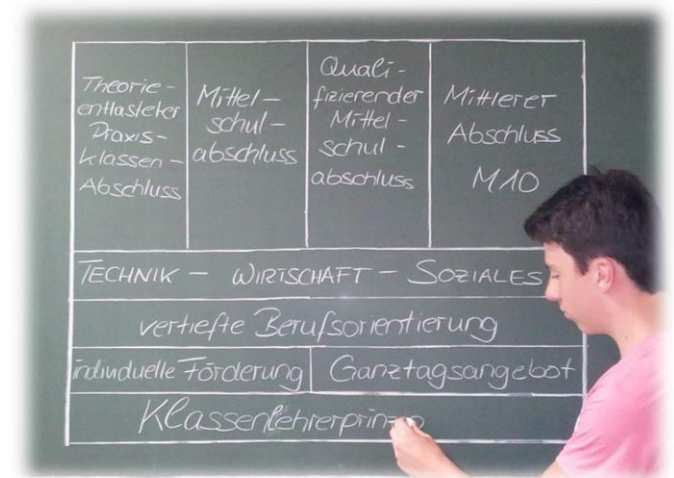 Theorie-
entlasteter
Praxis-
klassen-
Abschluss
Mittel-
schul-
abschluss
Quali-
fizierender
Mittel-
schul-
abschluss
Mittlerer
Abschluss
M10
TECHNIK - WIRTSCHAFT - SOZIALES
vertiefte Berufsorientierung
individuelle Förderung
Ganztagsangebot
Klassenlehrerprinzip